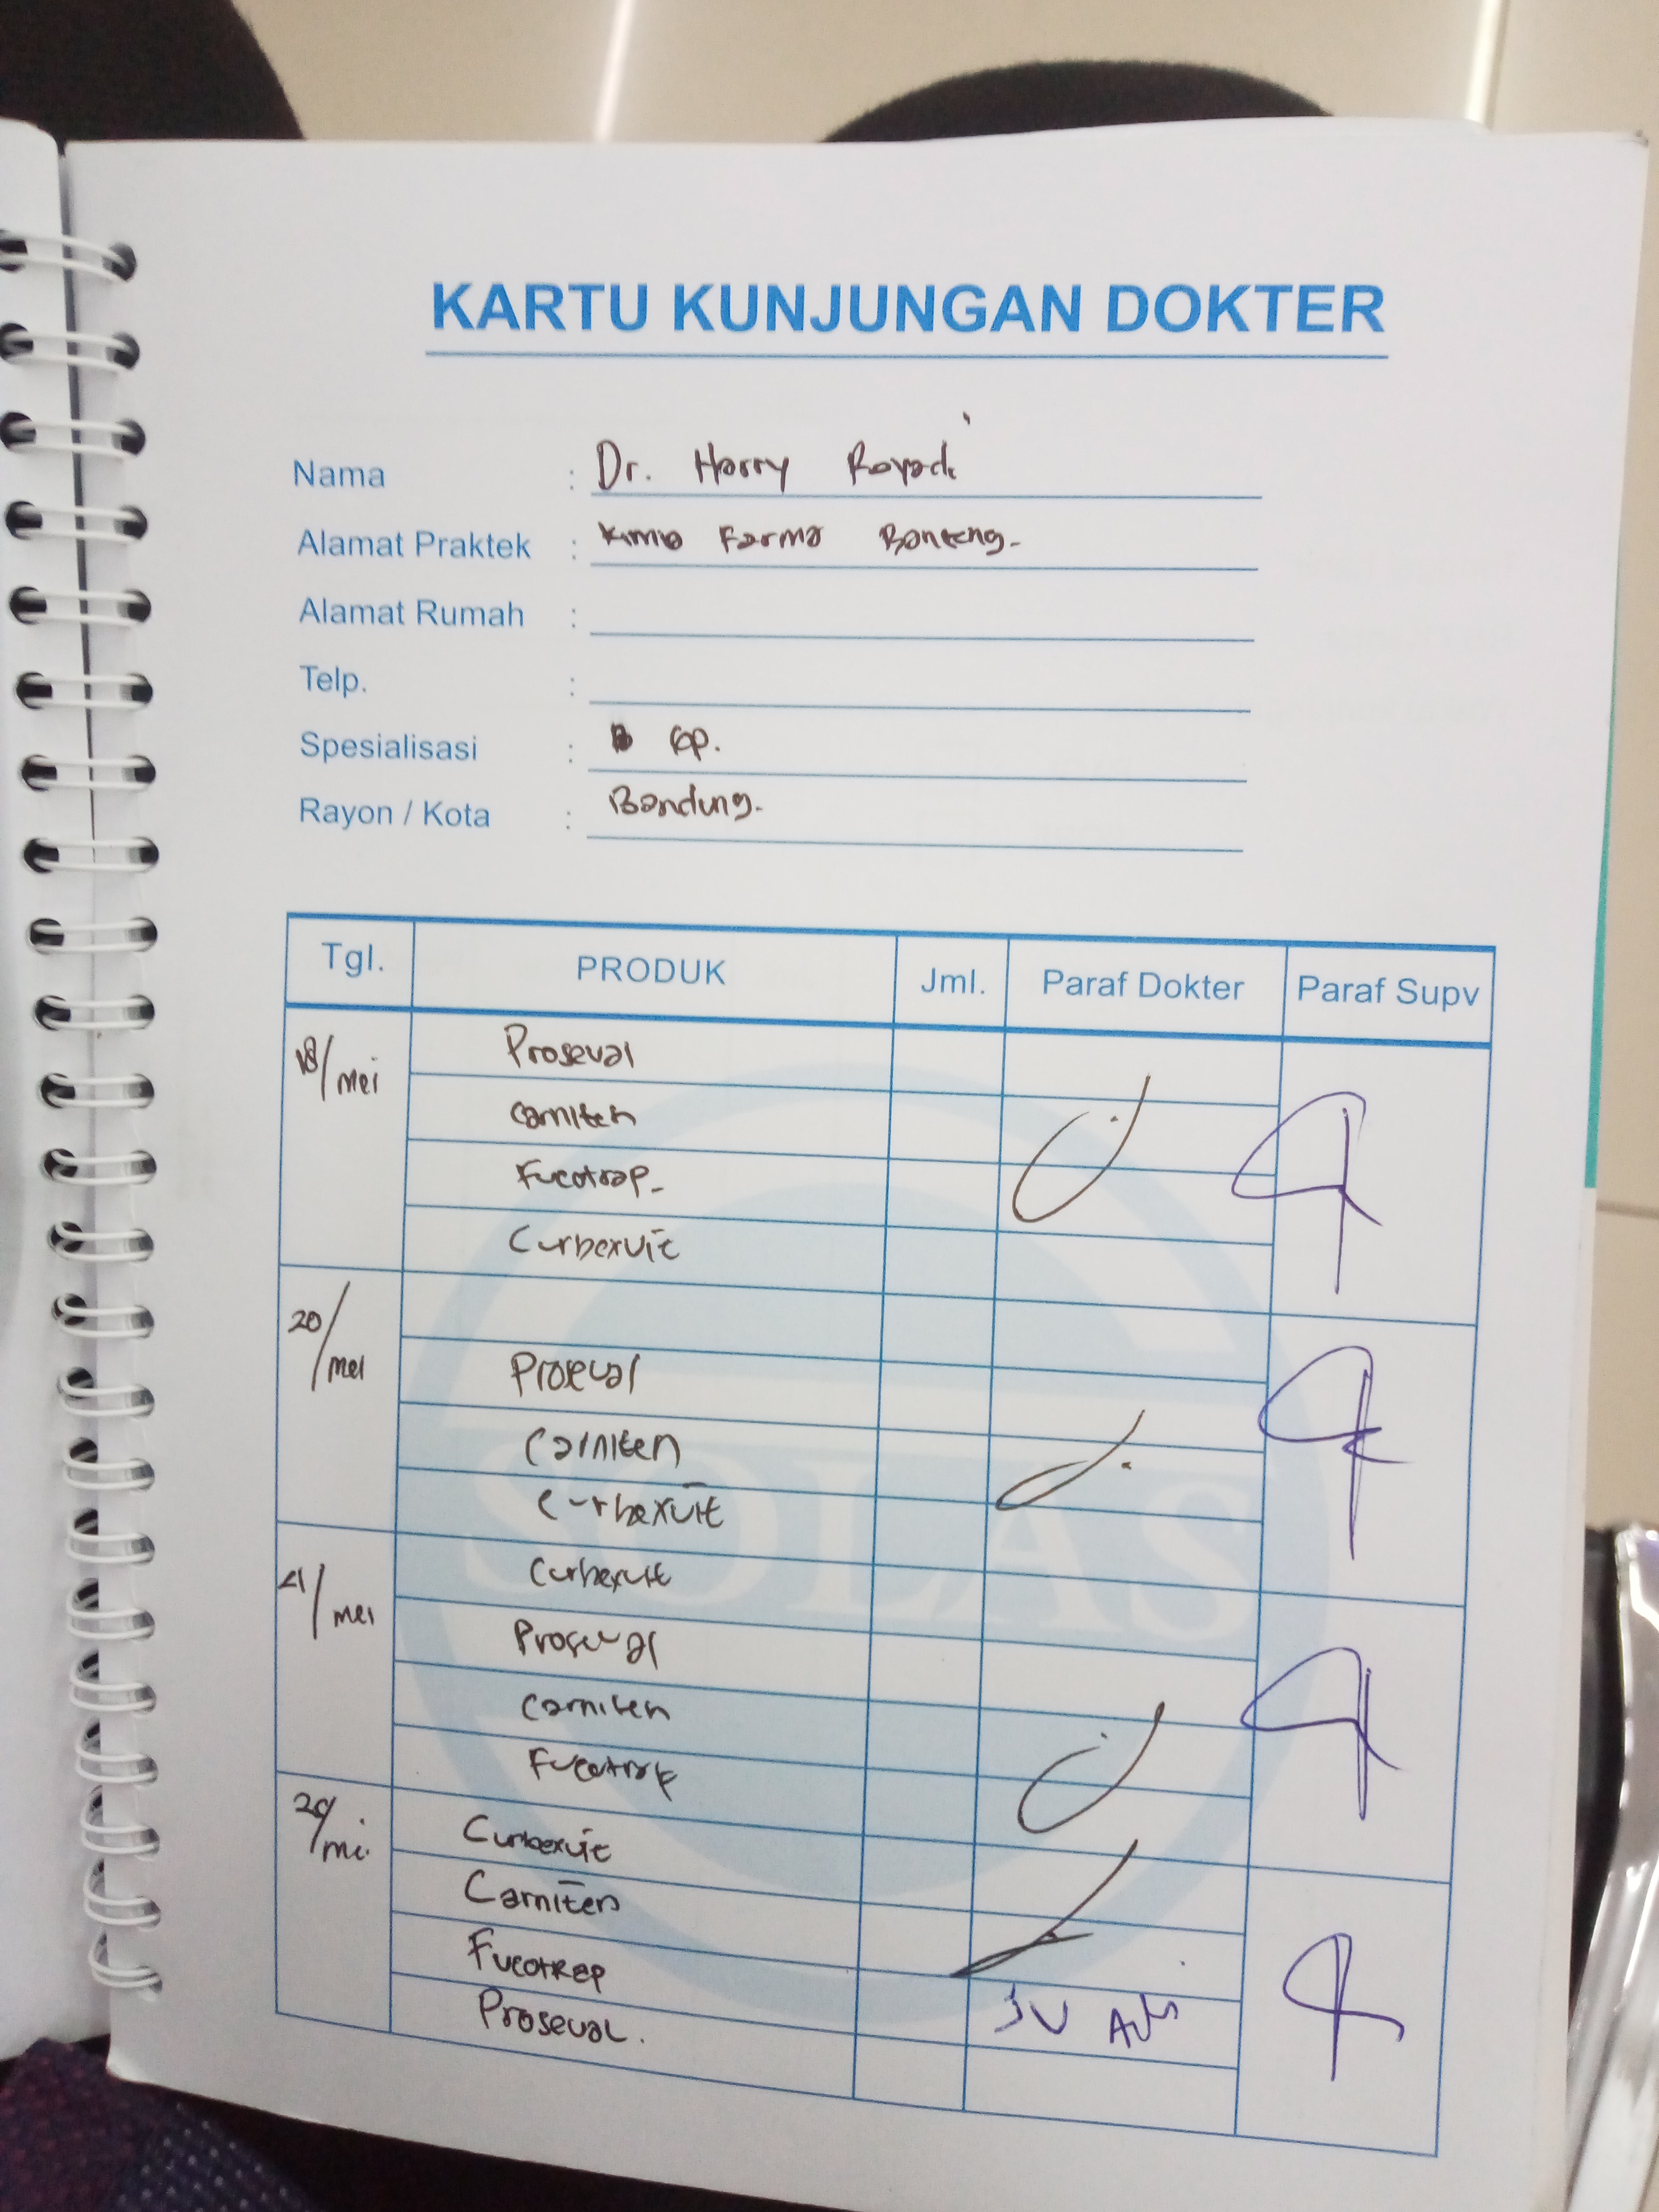 KARTU KUNJUNGAN DOKTER
Nama : Dr. Harry Royadi
Alamat Praktek : Kimia Farma Banteng-
Alamat Rumah :
Telp. :
Spesialisasi : Gp.
Rayon / Kota : Bandung-
Tgl. PRODUK Jml. Paraf Dokter Paraf Supv
18/mei Proseval
Carniten
Fucotrap-
Curbexvit
20/mei
Proseval
Carniten
Curbexvit
21/mei Curbexvit
Proseval
Carniten
Fucotrap
/mei Curbexvit
Carniten
Fucotrap
Proseval.
SOLAS